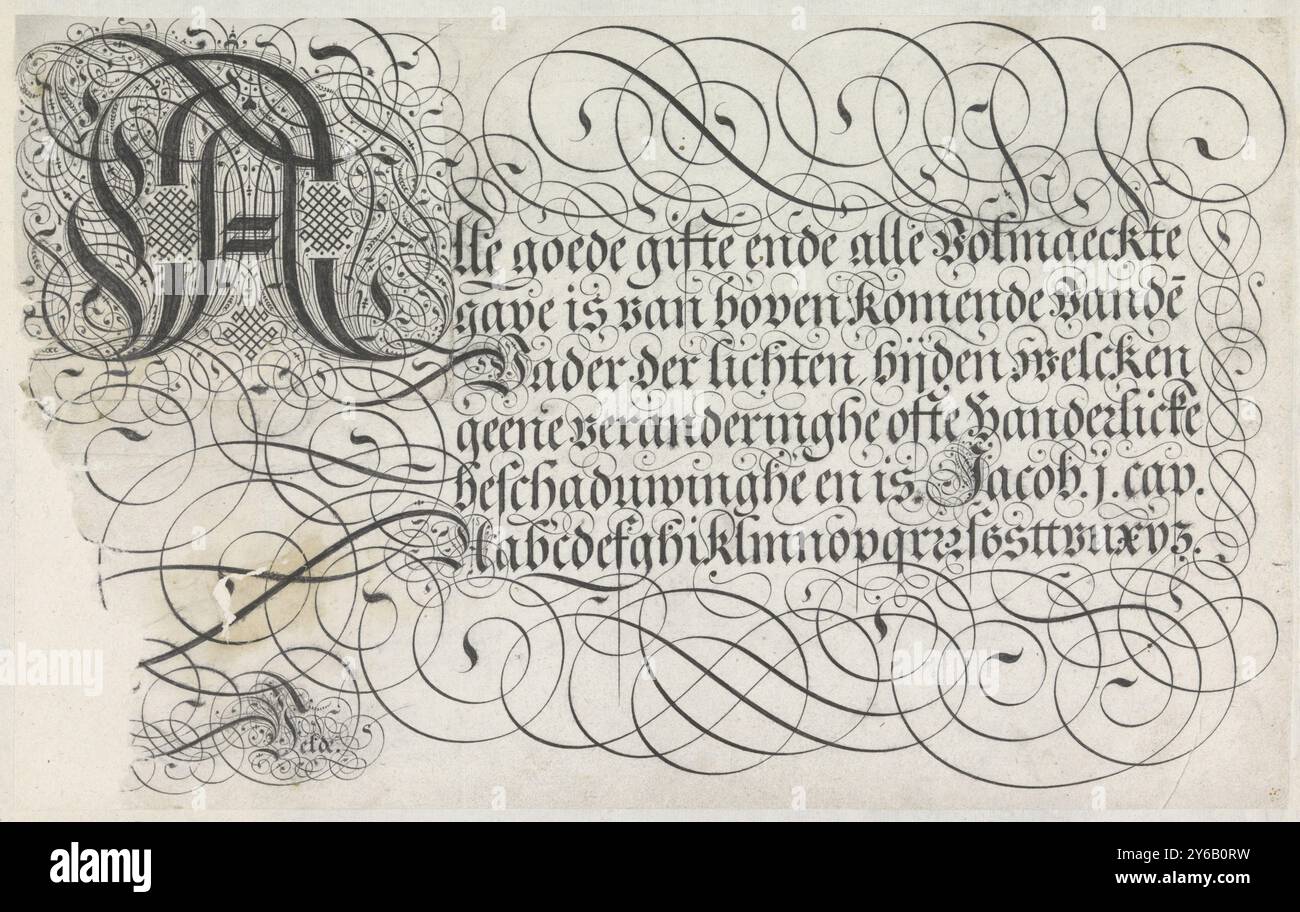 Alle goede gifte ende alle volmaeckte
gave is van boven komende vandē
Vader der lichten, bijden welcken
geene veranderinghe ofte
beschaduwinghe en is. Jacob. j. cap.
Aabcdefghiklmnopqrꝛsſsttvuxyz.
Velde.
alamy
Image ID: 2Y6B0RW
www.alamy.com